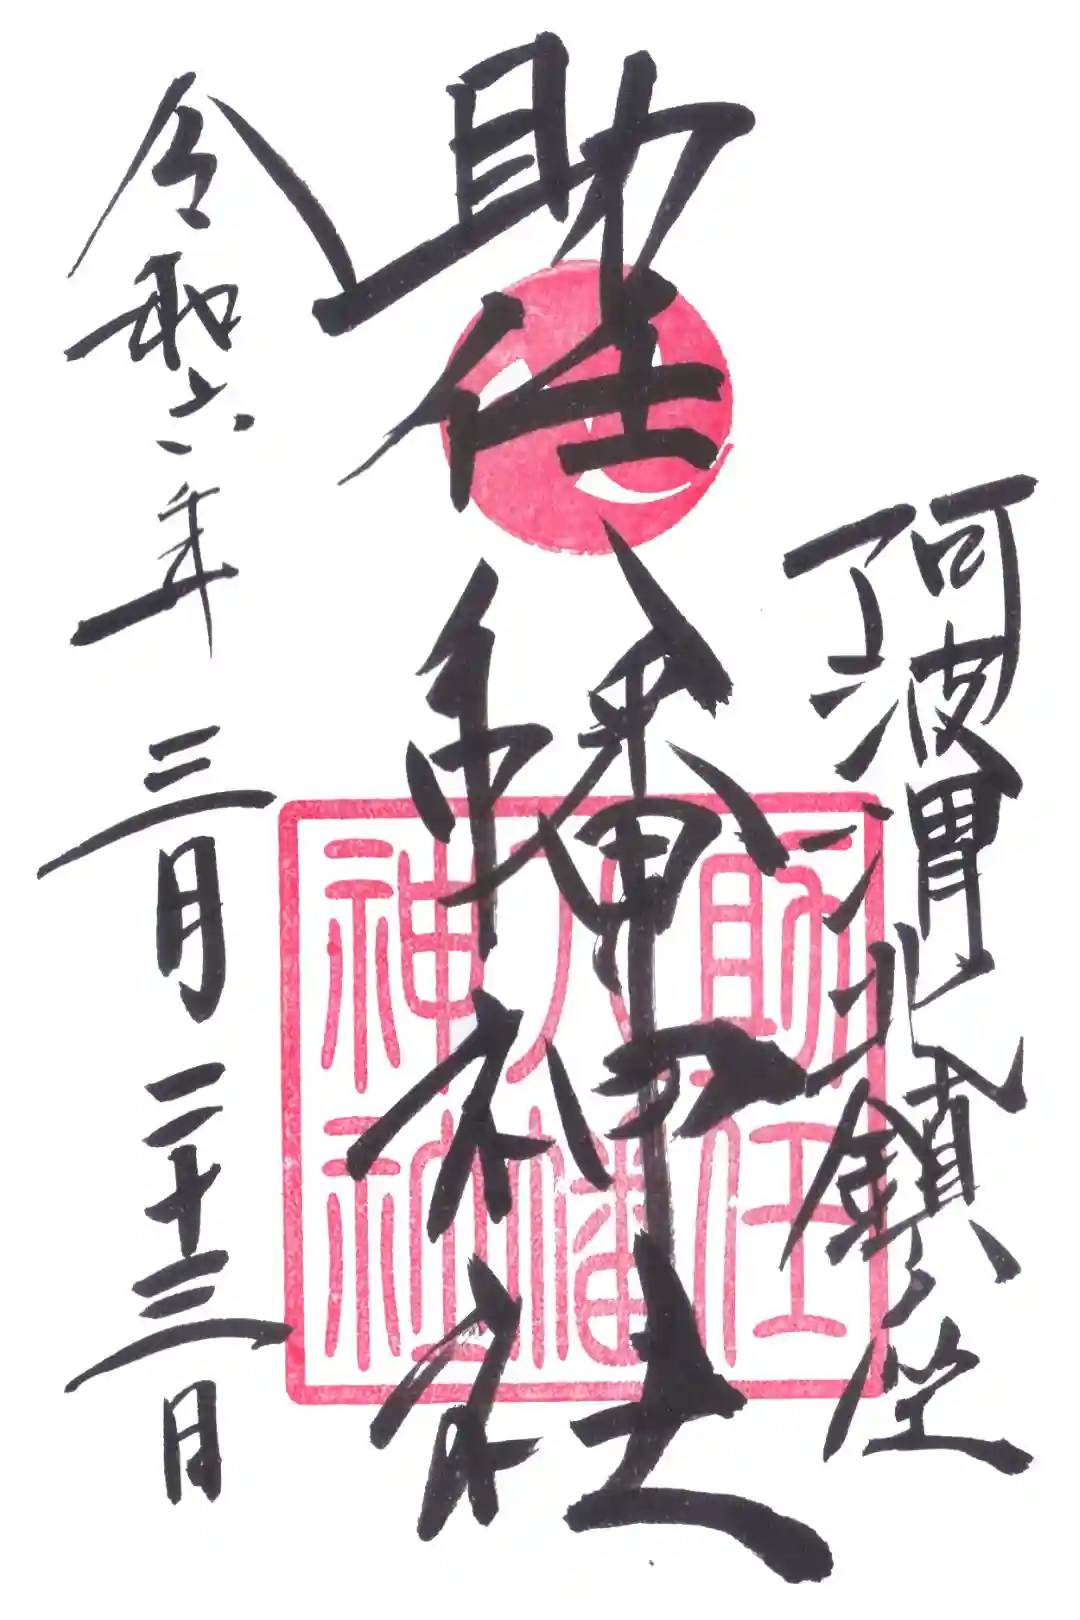 阿波渭北鎮坐
助任八幡神社
令和六年三月二十三日
助任
八幡
神社